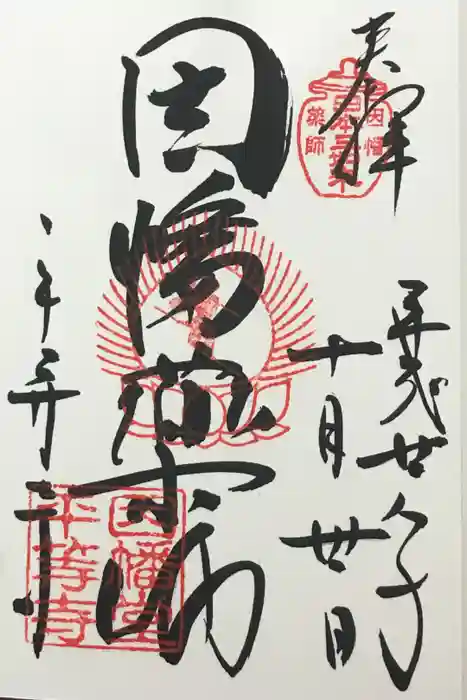 奉拝
因幡
日本三如来
薬師
平成廿八年
十月丗日
因幡薬師
平等寺
因幡堂
平等寺